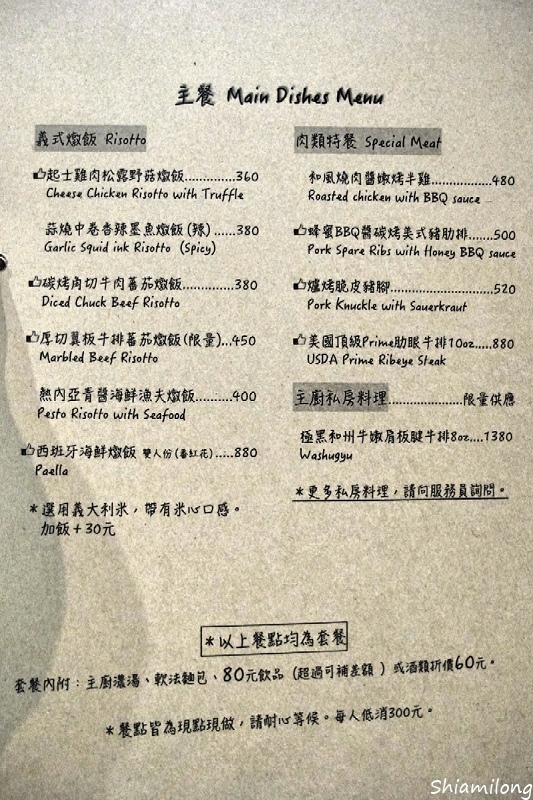 主餐 Main Dishes Menu
義式燉飯 Risotto
起士雞肉松露野菇燉飯...............360
Cheese Chicken Risotto with Truffle
蒜燒中卷香辣墨魚燉飯(辣)......380
Garlic Squid ink Risotto (Spicy)
碳烤角切牛肉蕃茄燉飯...............380
Diced Chuck Beef Risotto
厚切翼板牛排蕃茄燉飯(限量)...450
Marbled Beef Risotto
熱內亞青醬海鮮漁夫燉飯.........400
Pesto Risotto with Seafood
西班牙海鮮燉飯 雙人份(番紅花).....880
Paella
*選用義大利米，帶有米心口感。
加飯＋30元
肉類特餐 Special Meat
和風燒肉醬嫩烤半雞...............480
Roasted chicken with BBQ sauce
蜂蜜BBQ醬碳烤美式豬肋排.......500
Pork Spare Ribs with Honey BBQ sauce
爐烤脆皮豬腳.........................520
Pork Knuckle with Sauerkraut
美國頂級Prime肋眼牛排10oz.....880
USDA Prime Ribeye Steak
主廚私房料理.......................限量供應
極黑和州牛嫩肩板腱牛排8oz....1380
Washugyu
*更多私房料理，請向服務員詢問。
*以上餐點均為套餐
套餐內附：主廚濃湯、軟法麵包、80元飲品（超過可補差額）或酒類折價60元。
*餐點皆為現點現做，請耐心等候。每人低消300元。
Shiamilong